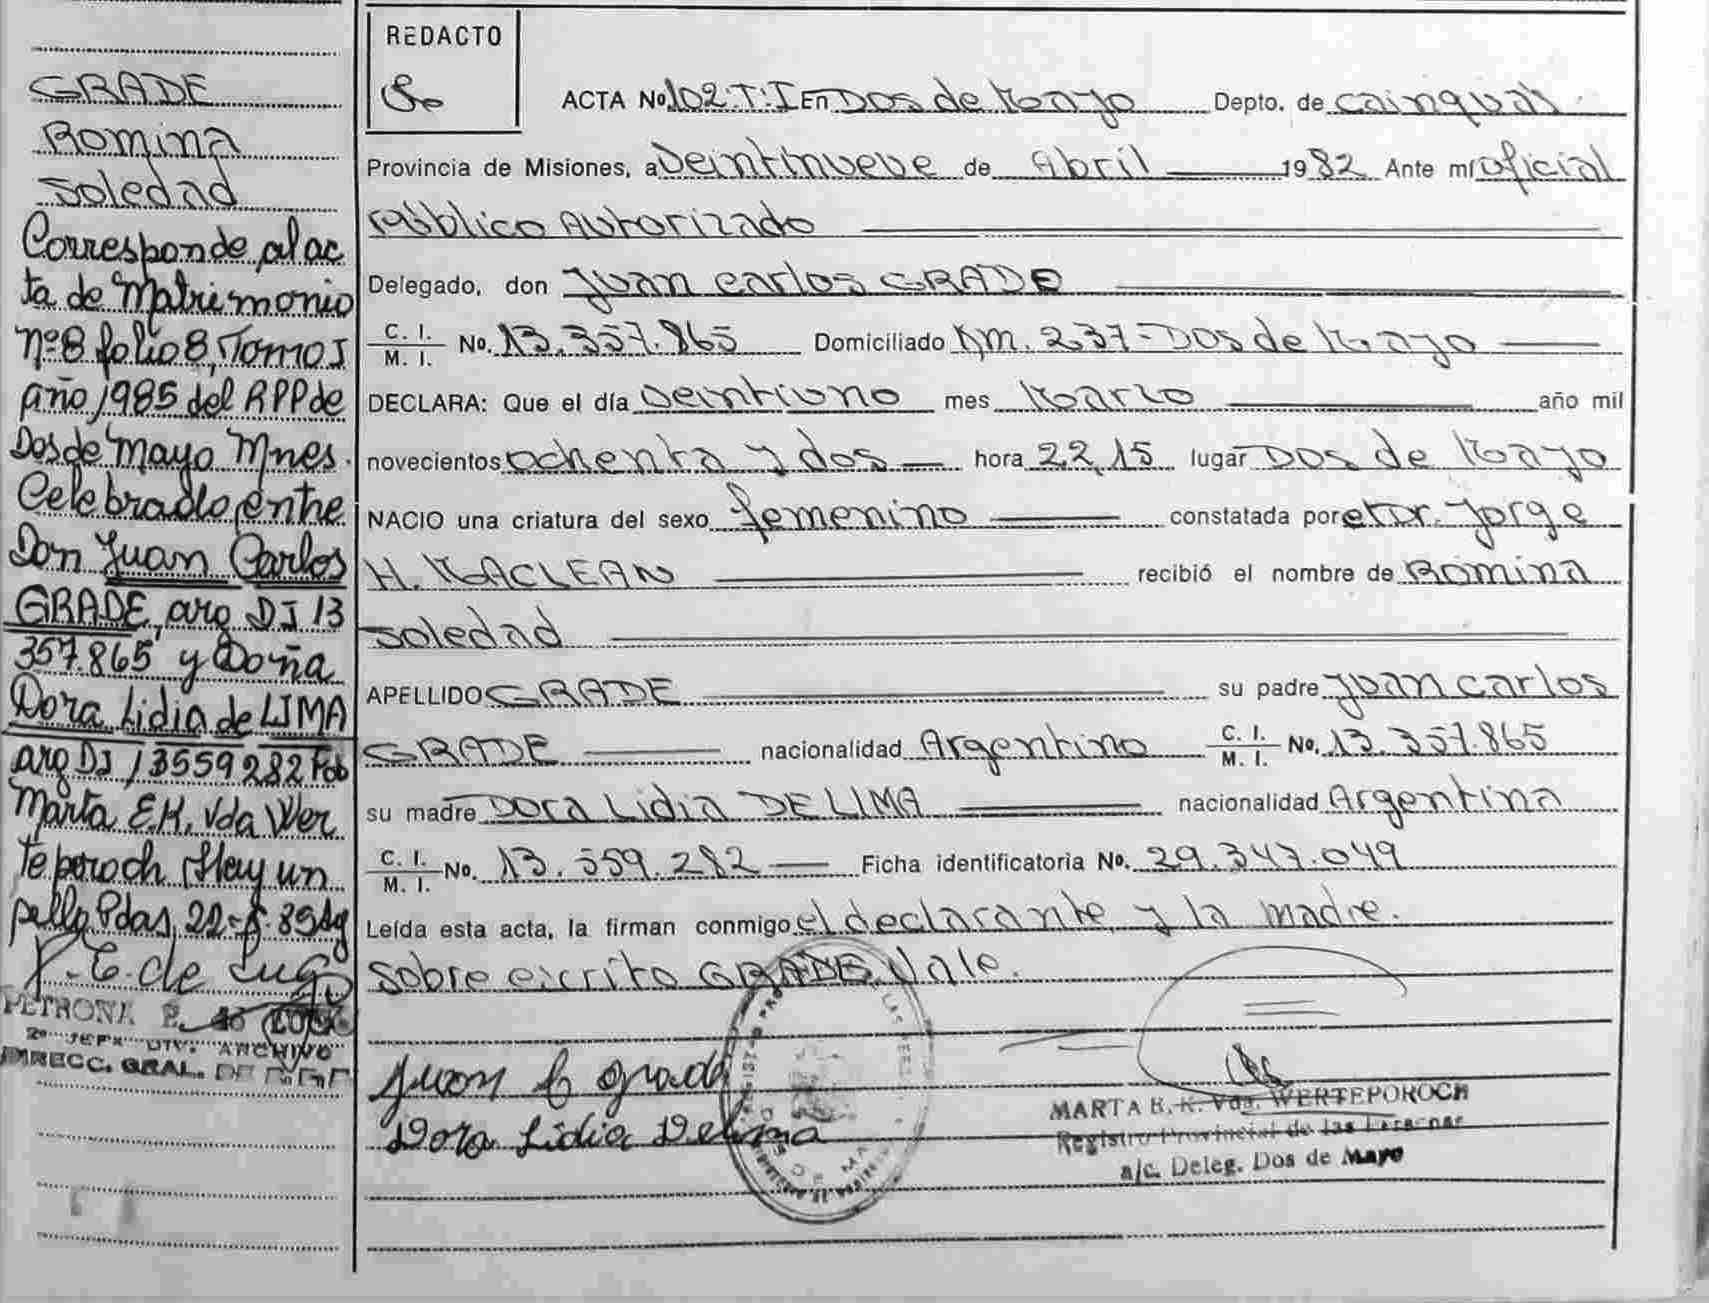 GRADE
Romina
Soledad
Corresponde al ac
ta de Matrimonio
nº 8 folio 8, Tomo I
año 1985 del RPP de
Dos de Mayo Mnes.
Celebrado entre
Don Juan Carlos
GRADE, arg DI 13
357.865 y Doña
Dora Lidia de LIMA
arg DI 13559282 Fdo
Marta E.K. Vda Wer
teporoch Hay un
sello Pdas, 22-8-89
P. E. de Lugo
PETRONA E. de LUGO
2º JEFA DIV. ARCHIVO
DIRECC. GRAL. DE
REDACTO
ACTA No. 102·T·I En Dos de Mayo Depto. de Cainguás
Provincia de Misiones, a Veintinueve de Abril 1982 Ante mí oficial
Público Autorizado
Delegado, don Juan Carlos GRADE
C. I. / M. I. No. 13.357.865 Domiciliado Km. 237-Dos de Mayo
DECLARA: Que el día Veintiuno mes Marzo año mil
novecientos ochenta y dos hora 22,15 lugar Dos de Mayo
NACIO una criatura del sexo femenino constatada por el Dr. Jorge
H. MACLEAN recibió el nombre de Romina
Soledad
APELLIDO GRADE su padre Juan Carlos
GRADE nacionalidad Argentino C. I. / M. I. No. 13.357.865
su madre Dora Lidia DE LIMA nacionalidad Argentina
C. I. / M. I. No. 13.559.282 Ficha identificatoria No. 29.347.049
Leída esta acta, la firman conmigo el declarante y la madre.
Sobre escrito GRADE. Vale.
Juan C Grade
Dora Lidia Delima
MARTA E. K. Vda. WERTEPOROCH
Registro Provincial de las Personas
a/c. Deleg. Dos de Mayo